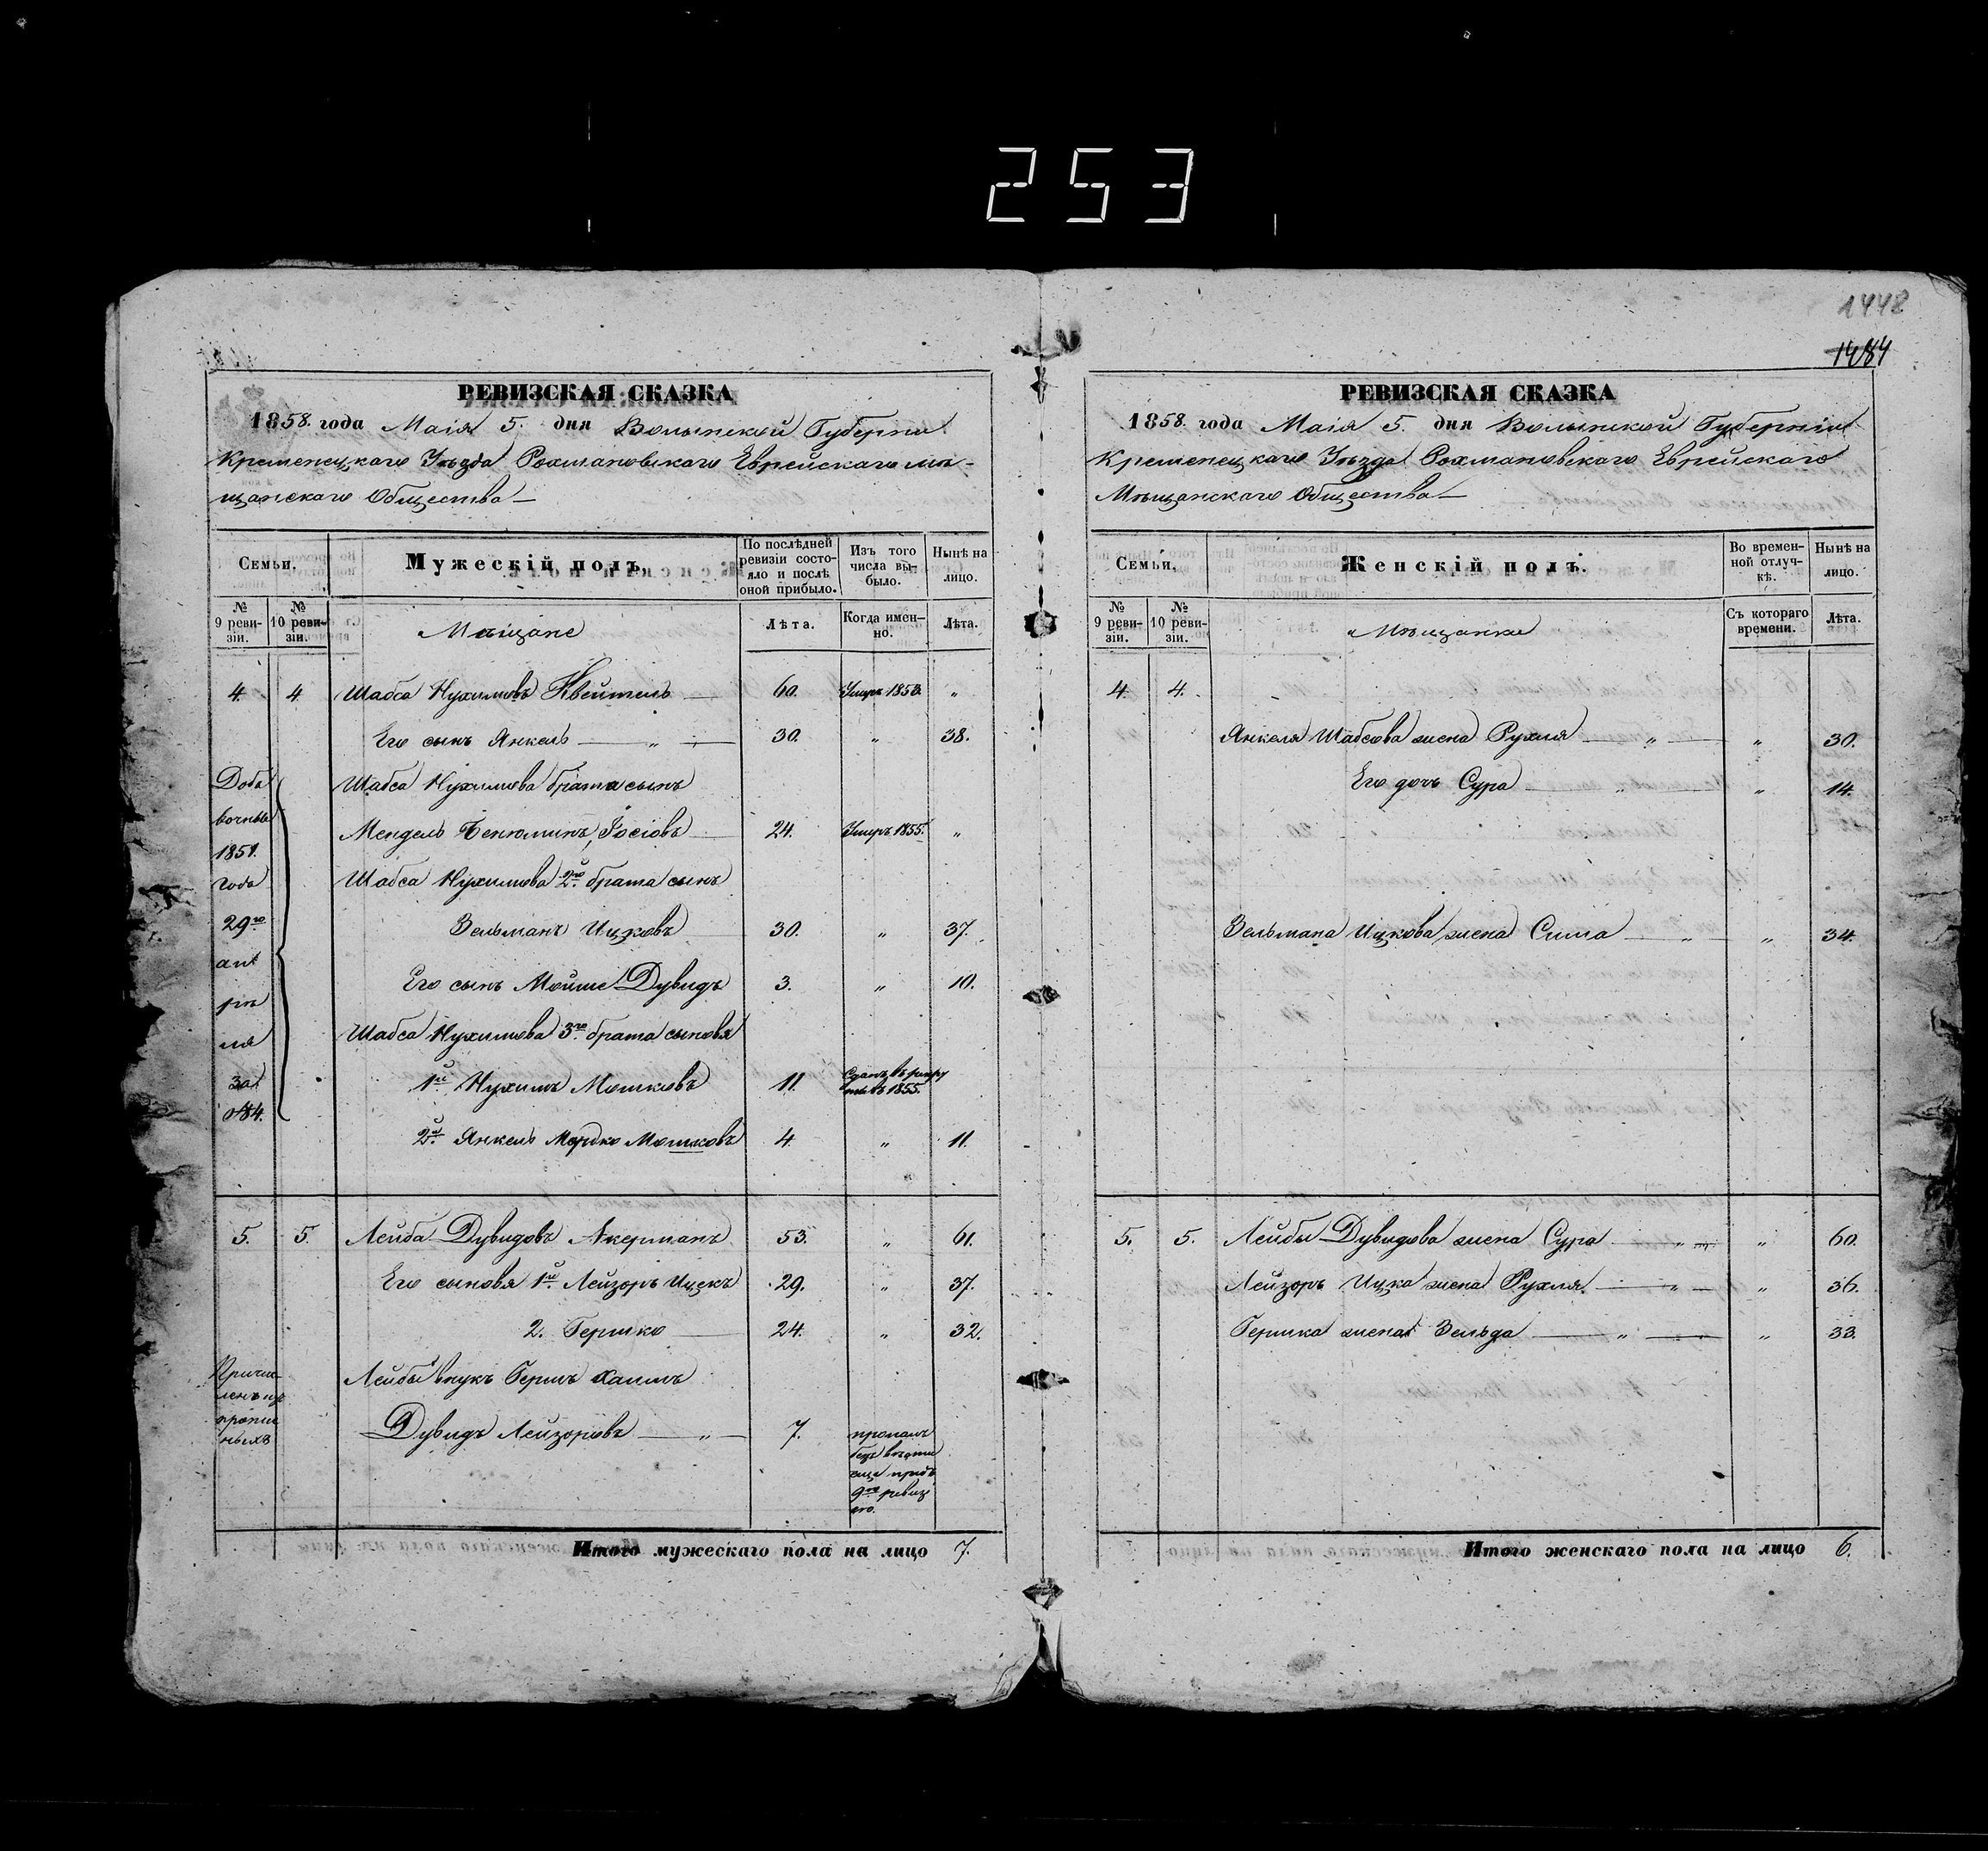 253
1448
1484
РЕВИЗСКАЯ СКАЗКА
1858. года Маія 5. дня Волынской Губерніи
Кременецкаго Уѣзда Рохмановскаго Еврейскаго мѣ-
щанскаго Общества —
Семьи. Мужескій полъ. По послѣдней ревизіи состояло и послѣ оной прибыло. Изъ того числа выбыло. Нынѣ на лицо.
№ 9 ревизіи. № 10 ревизіи. Мѣщане Лѣта. Когда именно. Лѣта.
4. 4 Шабса Нухимовъ Квейтель — 60. Умеръ 1853. „
Его сынъ Янкель — „ — 30. „ 38.
Доба Шабса Нухимова брата сынъ
вочные Мендель Бенюминъ Іосіовъ 24. Умеръ 1855. „
1851.
года Шабса Нухимова 2го брата сынъ
29го Зельманъ Ицковъ 30. „ 37.
апрѣля Его сынъ Мойше Дувидъ 3. „ 10.
Шабса Нухимова 3го брата сыновя
за 1й Нухимъ Мошковъ 11. Сданъ въ рекруты въ 1855.
№84. 2й Янкель Мошковъ 4. „ 11.
5. 5. Лейба Дувидовъ Акерманъ 53. „ 61.
Его сыновя 1й Лейзоръ Ицекъ 29. „ 37.
2. Гершко 24. „ 32.
Причисленъ изъ Лейбы внукъ Гершъ Хаимъ
Дувидъ Лейзоровъ — „ — 7. пропалъ безъ вѣсти еще предъ 9ю ревизіею.
Итого мужескаго пола на лицо 7.
РЕВИЗСКАЯ СКАЗКА
1858. года Маія 5. дня Волынской Губерніи
Кременецкаго Уѣзда Рохмановскаго Еврейскаго
Мѣщанскаго Общества —
Семьи. Женскій полъ. Во временной отлучкѣ. Нынѣ на лицо.
№ 9 ревизіи. № 10 ревизіи. Мѣщанки Съ котораго времени. Лѣта.
4. 4.
Янкеля Шабсова жена Рухля — „ — „ 30.
Его дочь Сура — „ — „ 14.
Зельмана Ицкова жена Сима — „ — „ 34.
5. 5. Лейбы Дувидова жена Сура — „ — „ 60.
Лейзоръ Ицка жена Рухля — „ — „ 36.
Гершка жена Зельда — „ — „ 33.
Итого женскаго пола на лицо 6.